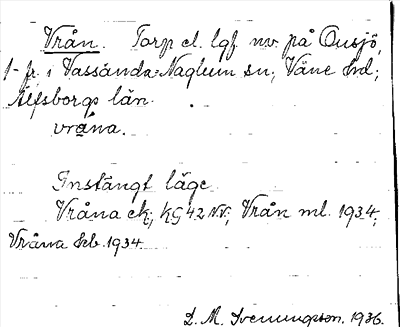 Vrån. Torp el. lgf. nv. på Ousjö,
1 fr. i Vassända-Naglum sn; Väne hd;
Älfsborgs län.
vråna.
Instängt läge
Vråna ek; KG 42 NV; Vrån ml. 1934;
Vråna hb. 1934.
D. M. Svenungsson. 1936.